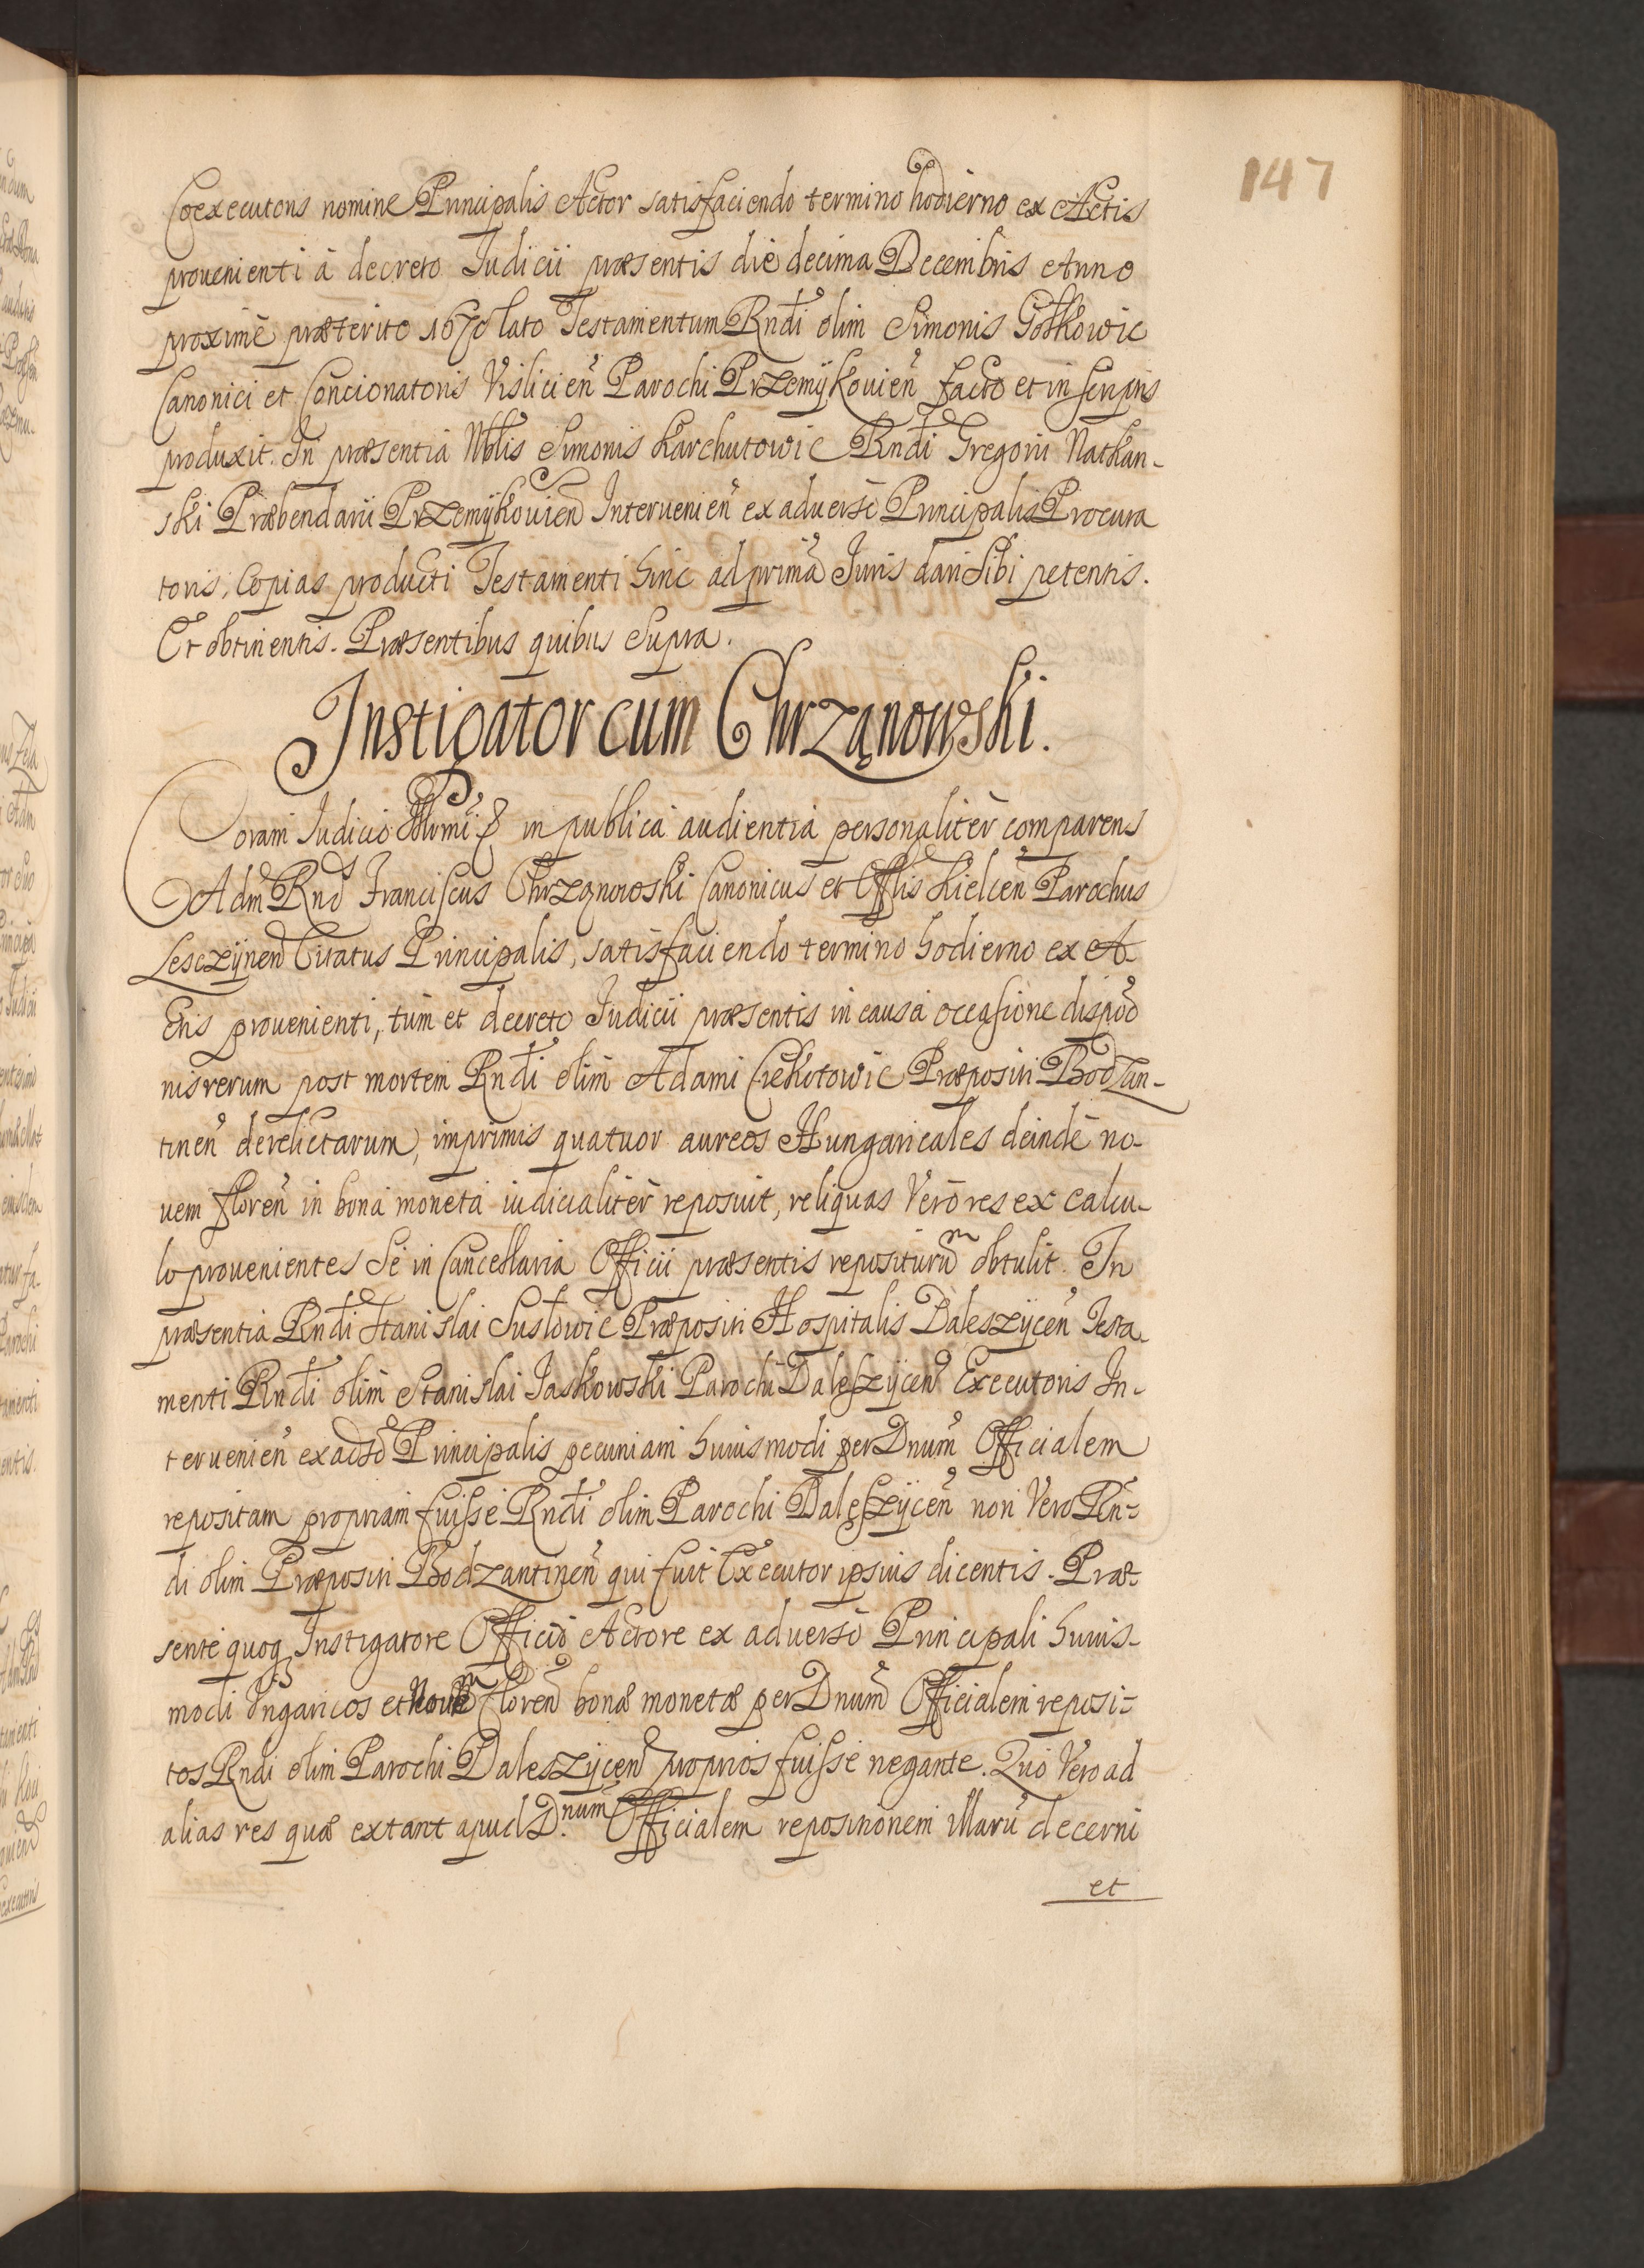 147
Coexecutoris nomine Principalis Actor satisfaciendo termino hodierno ex Actis
prouenienti à decreto Iudicii præsentis die decima Decembris Anno
proximè præterito 1670 lato Testamentum Rndi olim Simonis Gołkowic
Canonici et Concionatoris Vislicien̄ Parochi Przemÿkouien̄ facto et in scriptis
produxit. In præsentia Nblis Simonis Karchutowic Rndi Gregorii Nathan-
ski Præbendarii Przemÿkouien̄ Interuenien̄ ex aduerso Principalis Procura
toris, Copias producti Testamenti hinc ad primā Iuris dari sibi petentis.
Et obtinentis. Præsentibus quibus Supra.
Instigator cum Chrząnowski.
Coram Iudicio in publica audientia personaliter comparens
Adm Rnd Franciscus Chrząnowski Canonicus et Offlis Kielcen̄ Parochus
Lesczÿnen̄ Citatus Principalis, satisfaciendo termino hodierno ex A-
ctis prouenienti, tum et decreto Iudicii præsentis in causa occasione dispō
nis rerum post mortem Rndi olim Adami Ciekotowic Præpositi Bodzan-
tinen̄ derelictarum, imprimis quatuor aureos Hungaricales deindè no-
uem floren̄ in bona moneta iudicialiter reposuit, reliquas Verò res ex calcu-
lo prouenientes Se in Cancellaria Officii præsentis repositurum obtulit. In
præsentia Rndi Stanislai Susłowic Præpositi Hospitalis Daleszÿcen̄ Testa-
menti Rndi olim Stanislai Iaskowski Parochi Daleszÿcen̄ Executoris In-
teruenien̄ ex adsō Principalis pecuniam huiusmodi per Dnum Officialem
repositam propriam fuisse Rndi olim Parochi Daleszÿcen̄ non Vero Rn-
di olim Præpositi Bodzantinen̄ qui fuit Executor ipsius dicentis. Præ-
sente quoq Instigatore Officii Actore ex aduerso Principali huius-
modi Vngaricos et Nouem Floren̄ bonæ monetæ per Dnum Officialem reposi-
tos Rndi olim Parochi Daleszÿcen̄ proprios fuisse negante. Quò Vero ad
alias res quæ extant apud D.num Officialem repositionem illarū decerni
et